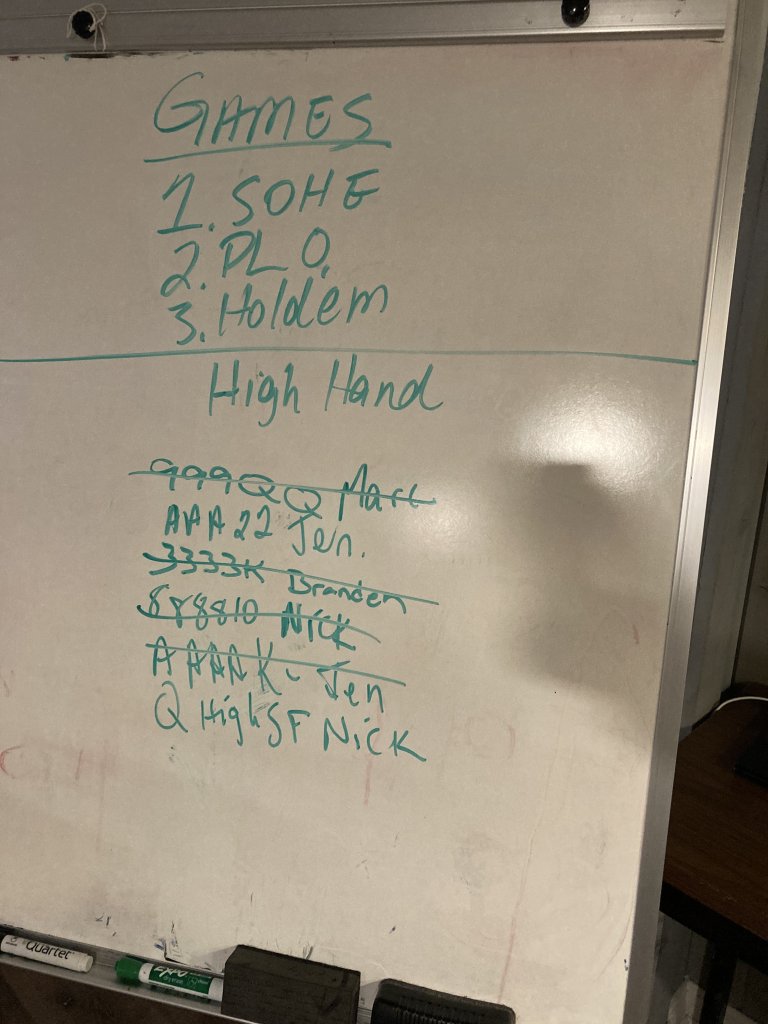 GAMES
1. SOHE
2. PLO.
3. Holdem
High Hand
999QQ Marc
AAA22 Jen.
3333K Branden
888810 Nick
AAAAK - Jen
Q High SF Nick
Quartet
EXPO